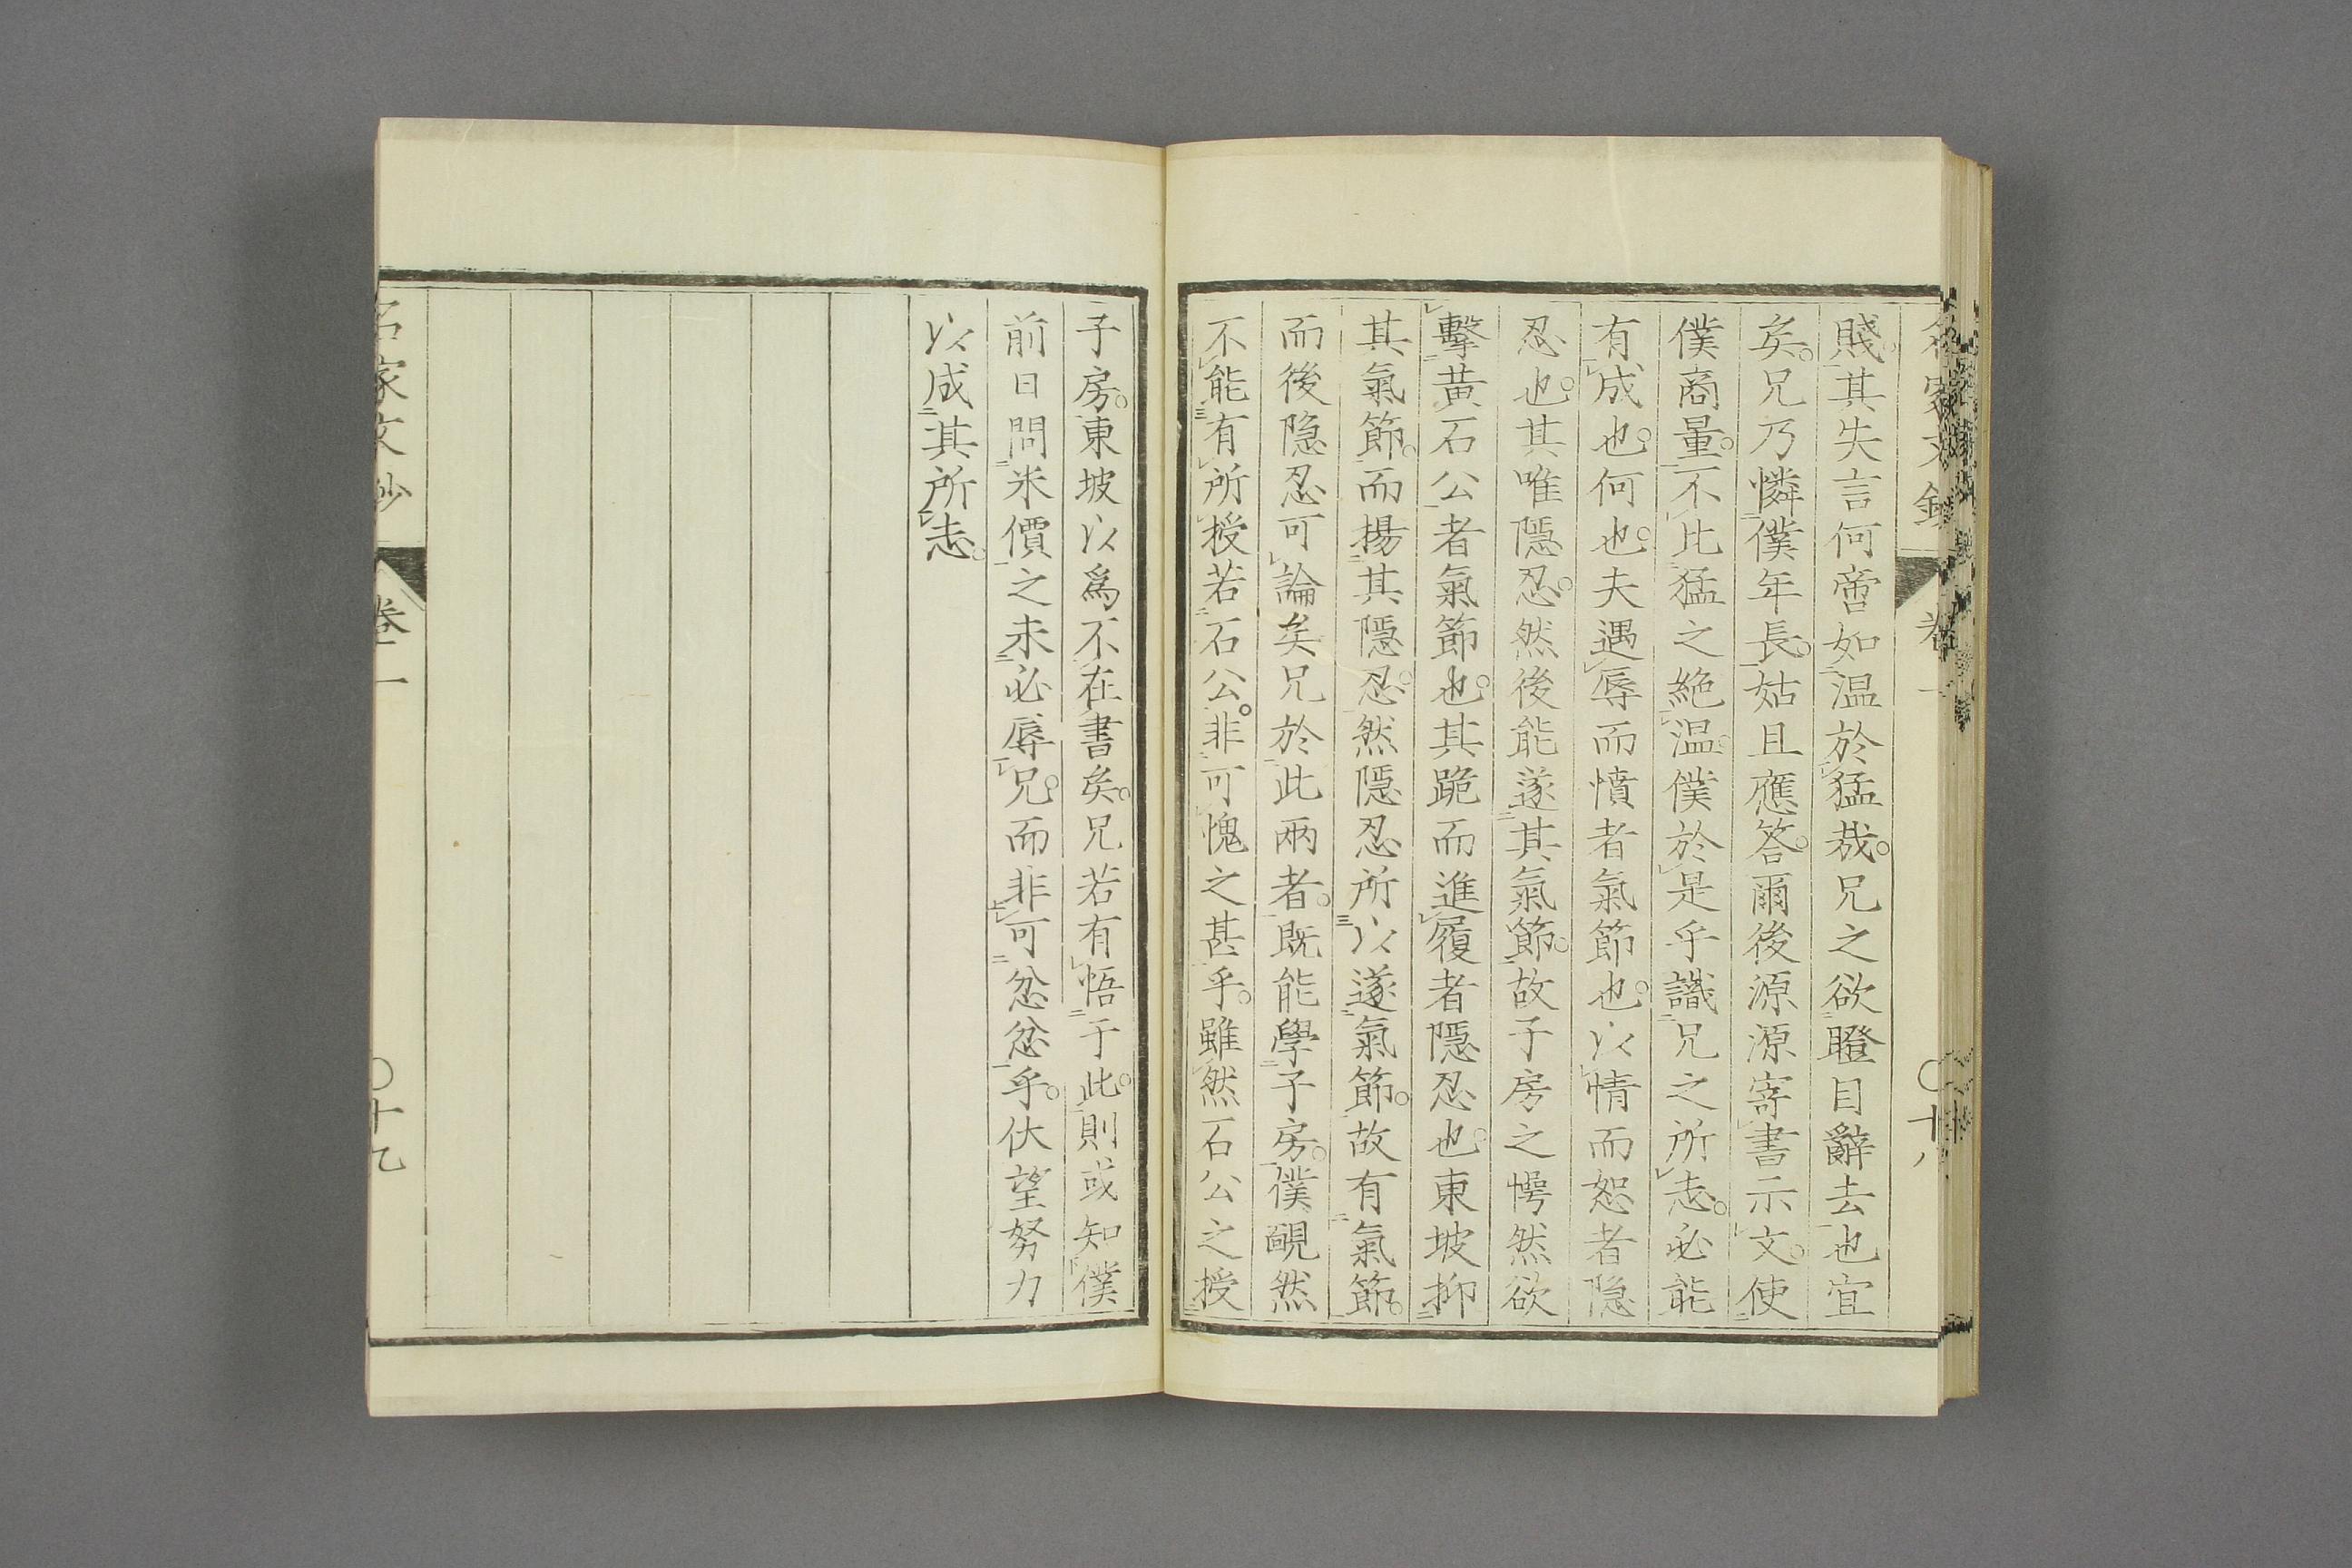 賤其失言何啻如温於猛哉。兄之欲瞪目辭去也宜
矣。兄乃憐僕年長。姑且應答。爾後源源寄書示文。使
僕商量。不比猛之絶温。僕於是乎識兄之所志。必能
有成也。何也。夫遇辱而憤者氣節也。以情而恕者隐
忍也。其唯隱忍。然後能遂其氣節。故子房之愕然欲
擊黄石公者氣節也。其跪而進履者隱忍也。東坡抑
其氣節。而揚其隱忍。然隱忍所以遂氣節。故有氣節。
而後隐忍可論矣兄於此兩者。既能學子房。僕靦然
不能有所授若石公。非可愧之甚乎。雖然石公之授
子房。東坡以爲不在書矣。兄若有悟于此。則或知僕
前日問米價之未必辱兄。而非可忿忿乎。伏望努力
以成其所志。
名家文鈔 卷一 〇十九